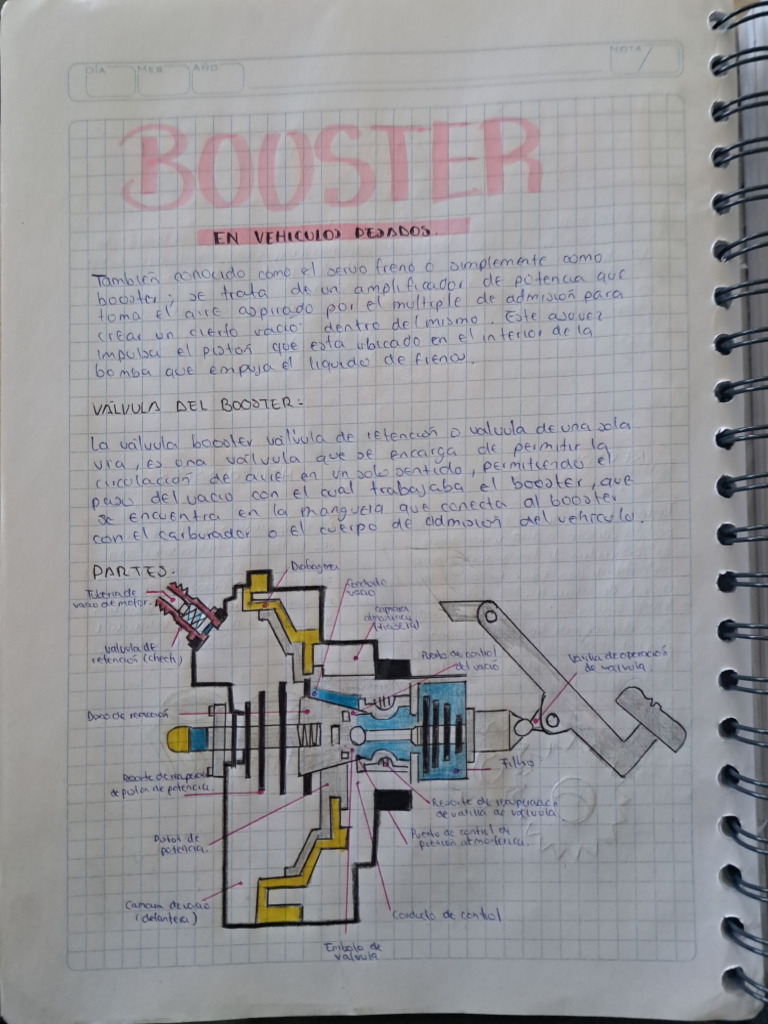 DÍA MES AÑO NOTA
BOOSTER
EN VEHICULOS PESADOS.
También conocido como el servo freno o simplemente como
booster; se trata de un amplificador de potencia que
toma el aire aspirado por el multiple de admisión para
crear un cierto vacio dentro del mismo. Este asuvez
impulsa el piston que esta ubicado en el interior de la
bomba que empuja el liquido de freno.
VÁLVULA DEL BOOSTER:
La válvula booster válvula de retención o valvula de una sola
via, es una válvula que se encarga de permitir la
circulación de aire en un solo sentido, permitiendo el
paso del vacio con el cual trabajaba el booster, que
se encuentra en la manguera que conecta al booster
con el carburador o el cuerpo de admision del vehiculo.
PARTES:
Tuberia de
vacio de motor.
valvula de
retención (chech)
Diafragma
vacio
camara
atmosferica
(trasera)
Puerto de control
del vacio
Varilla de operación
de valvula.
Disco de reacción
Resorte de recuperación
de piston de potencia.
Piston de
potencia.
Camara de vacio
(delantera)
Filtro
Resorte de recuperacion
de varilla de valvula
Puerto de control de
presion atmosferica.
Conducto de control
Embolo de
valvula